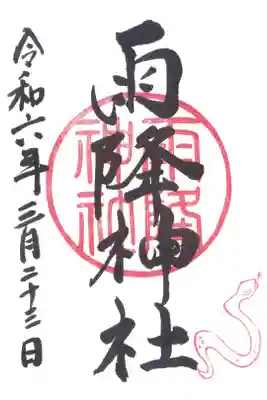 雨降神社
雨降
神社
令和六年三月二十三日